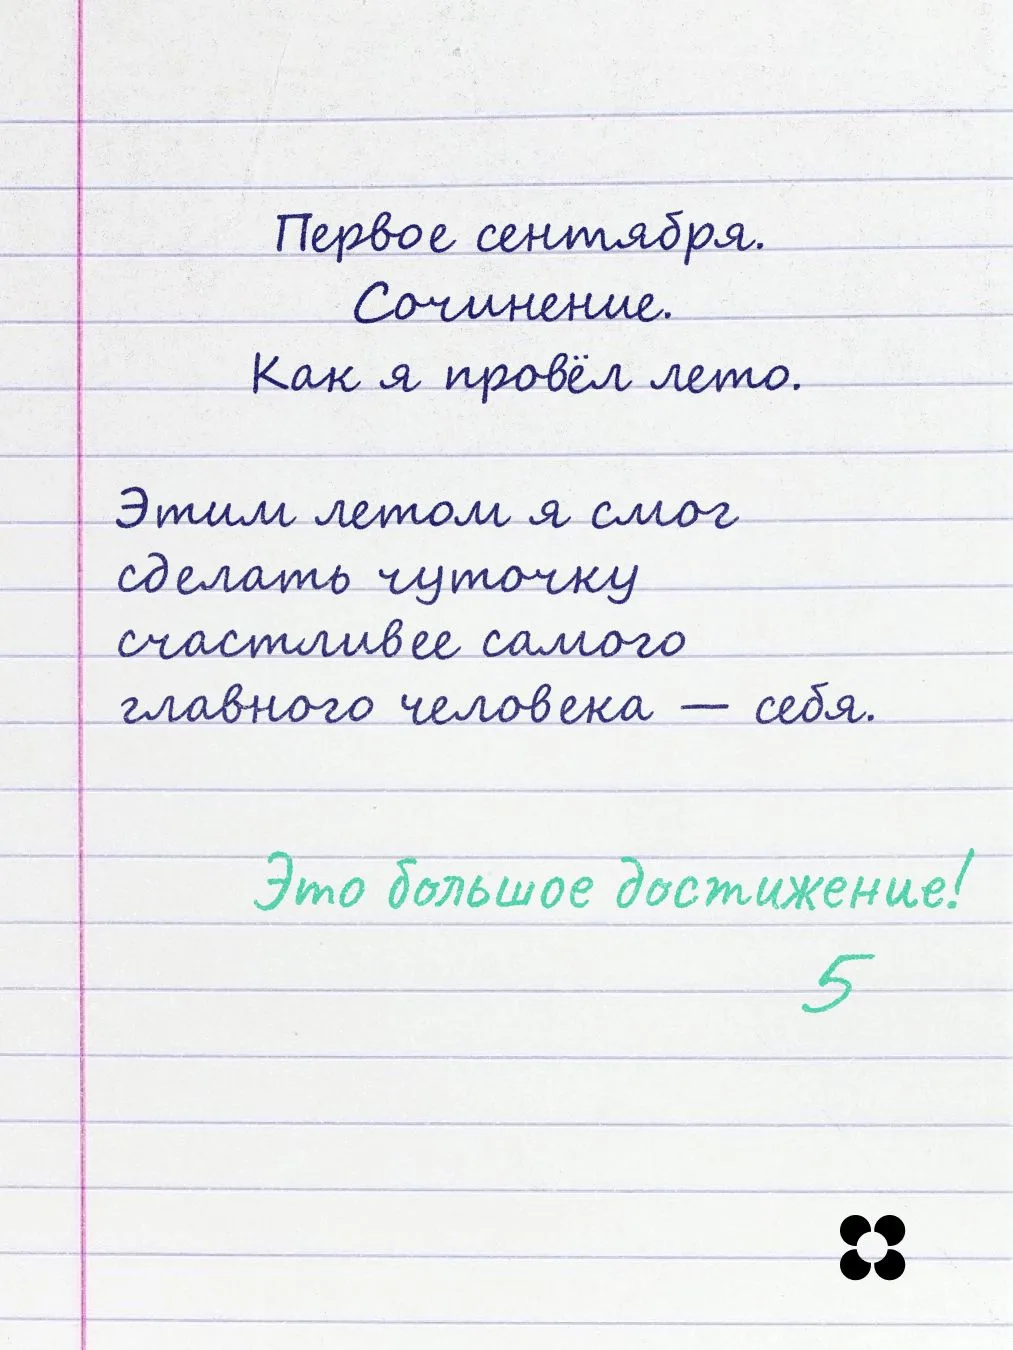 Первое сентября.
Сочинение.
Как я провёл лето.
Этим летом я смог
сделать чуточку
счастливее самого
главного человека — себя.
Это большое достижение!
5